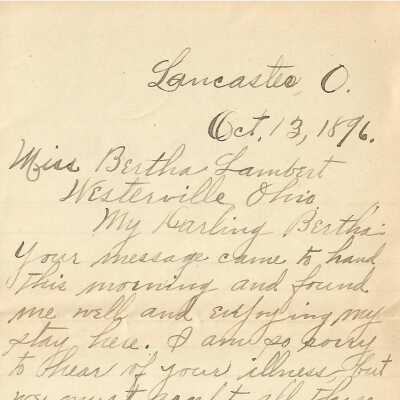 Lancaster, O.
Oct. 13, 1896.
Miss Bertha Lambert
Westerville, Ohio.
My Darling Bertha:
Your message came to hand
this morning and found
me well and enjoying my
stay here. I am so sorry
to hear of your illness, but
you must